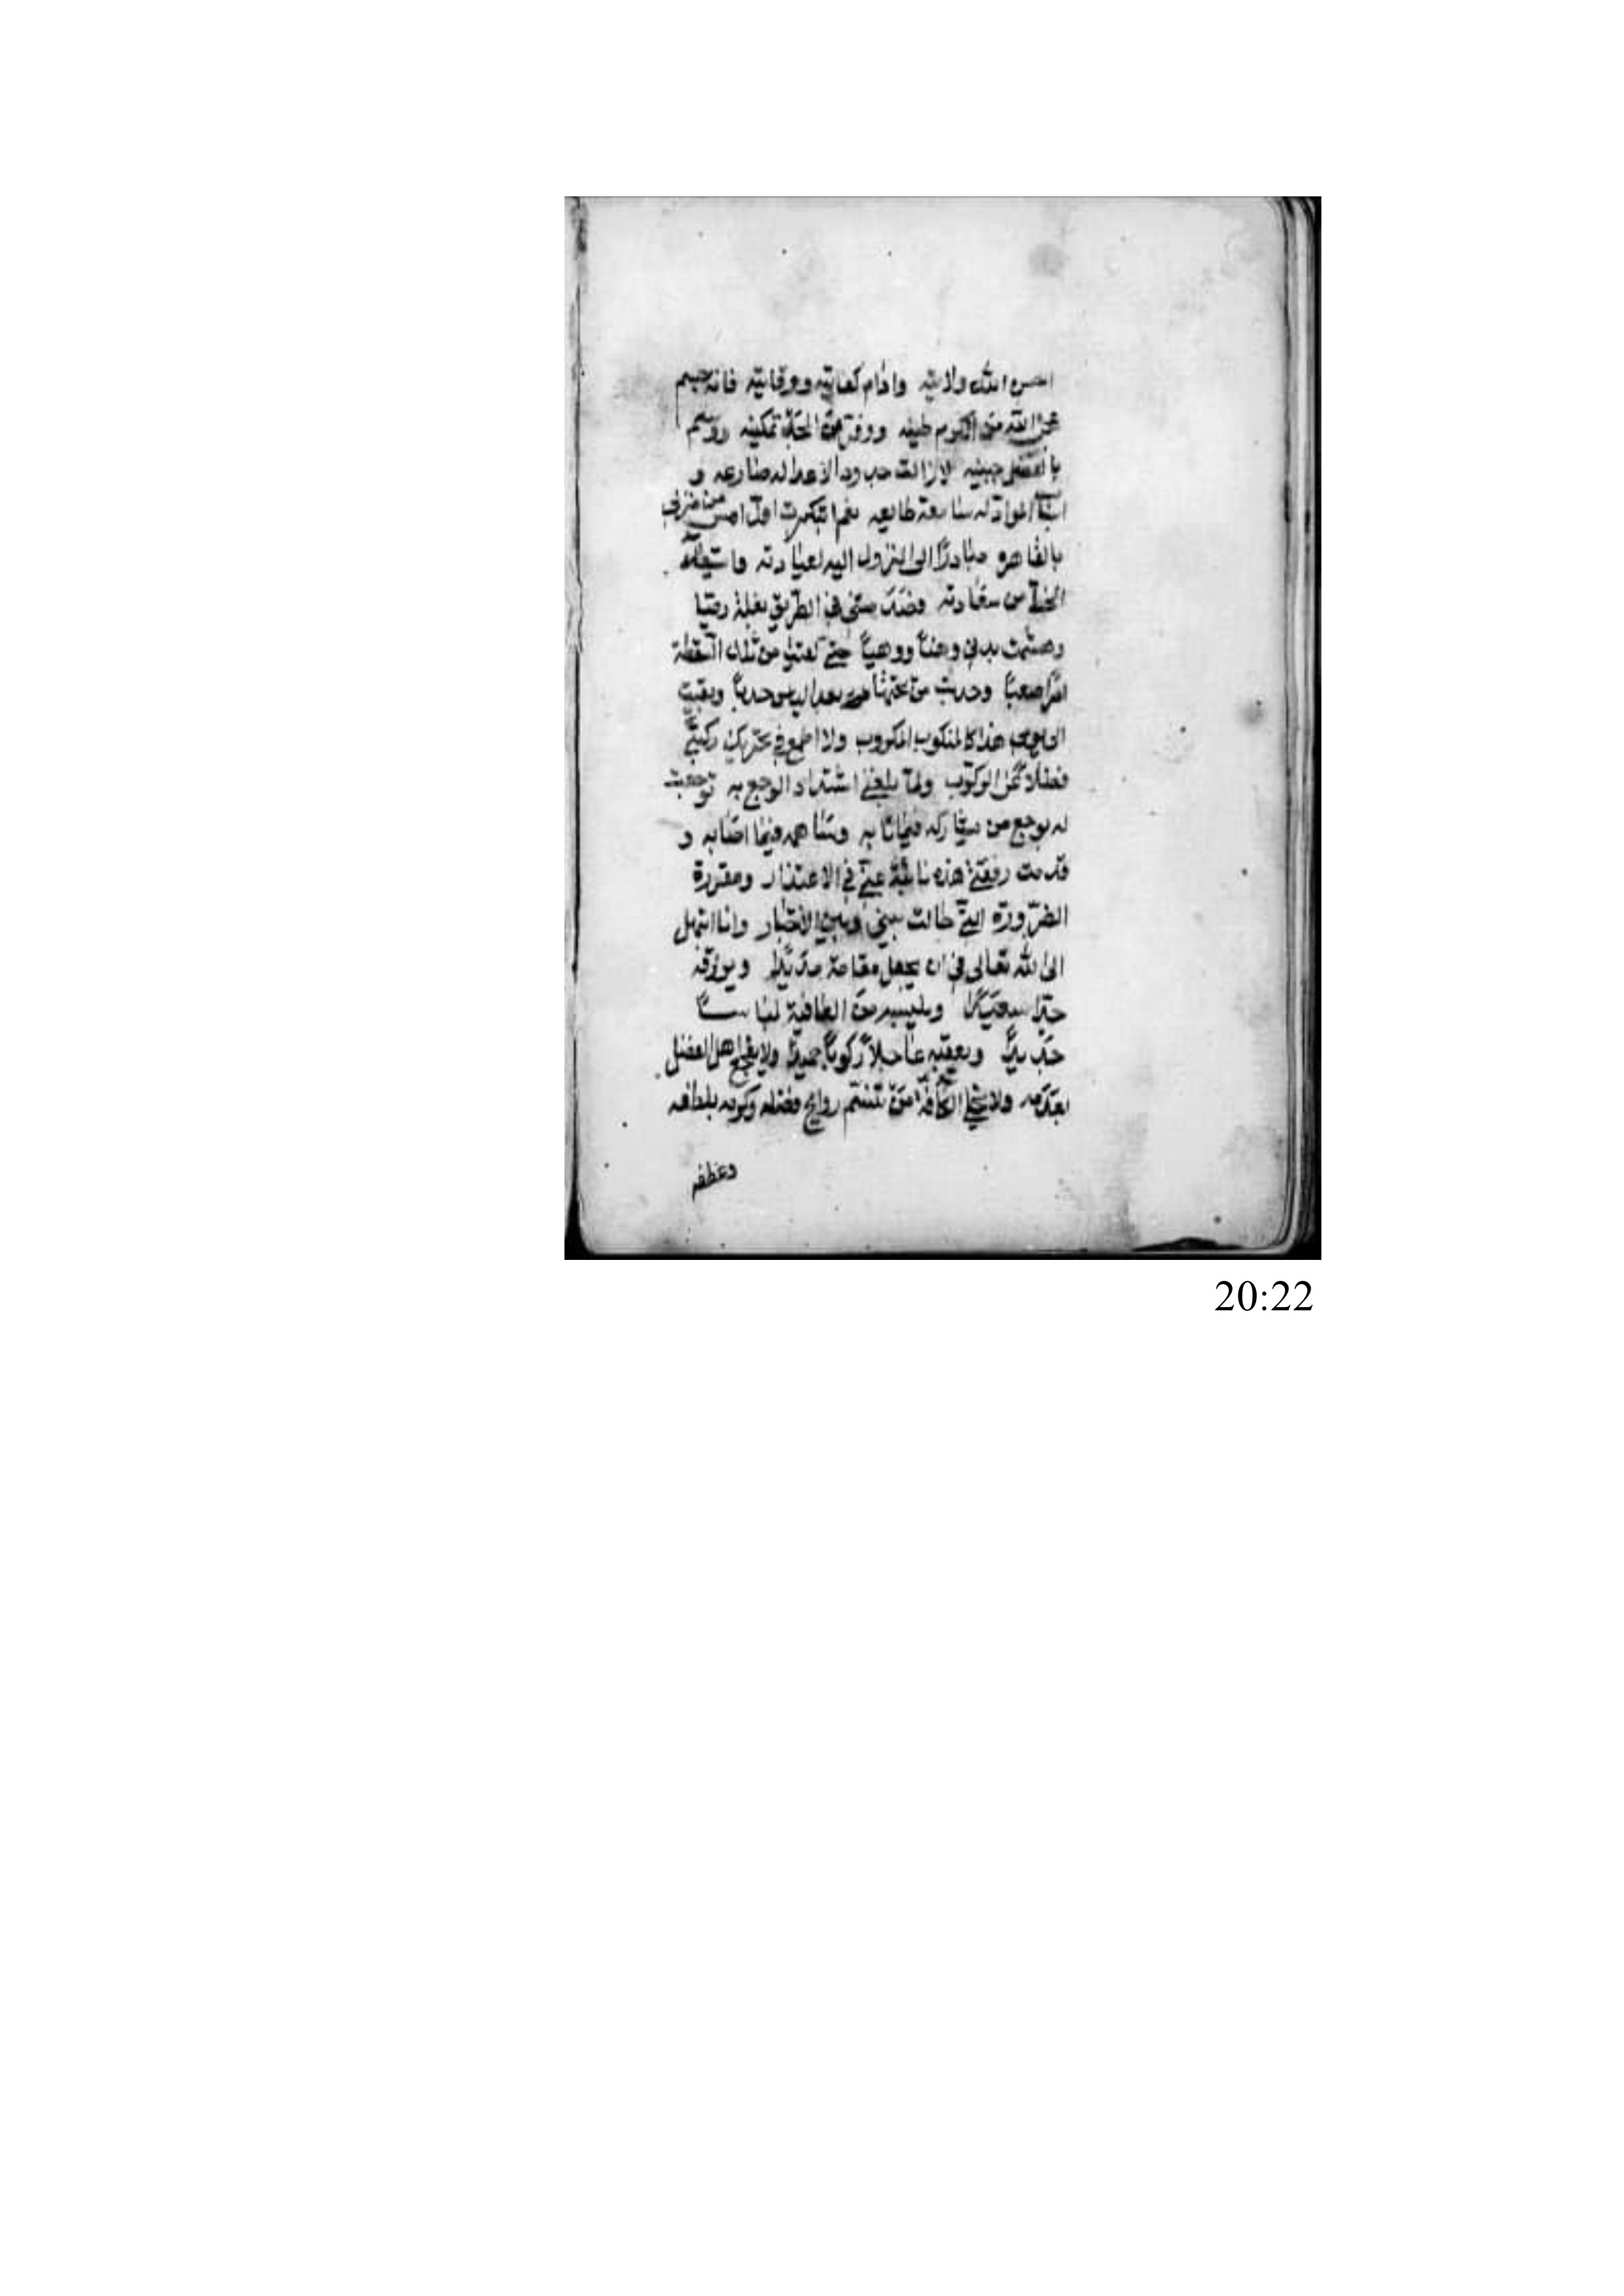 احسن الله ولايته وادام كفايته ووقايته فانه جسم
عجن الله من الكرم طينه ووفر من الحلة تمكينه ووسم
بالفضل جبينه لازالت خدود الاعدا له ضارعه و
اسباب المواد له سامعة طايعه نعم ابتكرت اول امس من منزلي
بالقاهره مبادرًا الى النزول اليه لعيادته واستملاء
الحظ من سعادته فصدمتني في الطريق بغلة
وهشمت بدني وهنًا ووهيًا حتى لقيت من تلك السقطة
امرًا صعبًا وحدبت من تحتها بعد اليبس حدبًا وبقيت
الى يومي هذا كالمنكوب المكروب ولا اطمع في تحريك ركبتي
فضلا عن الركوب ولما بلغني اشتداد الوجع به توجعت
له توجع من يشاركه فيما نابه ويساهمه فيما اصابه و
قدمت رقعتي هذه نائبة عني في الاعتذار ومقررة
الضرورة التي حالت بيني وبين الاختيار وانا ابتهل
الى الله تعالى في ان يجعل مقامه مديدًا ويرزقه
جدًا سعيدًا ويلبسه من العافية لباسًا
جديدًا ويعقبه عاجلاً ركوبًا حميدًا ولا يفجع اهل الفضل
بعدمه ولا يخلي الكافة من تنسم روايح فضله وكرمه بلطفه
وعطفه
20:22